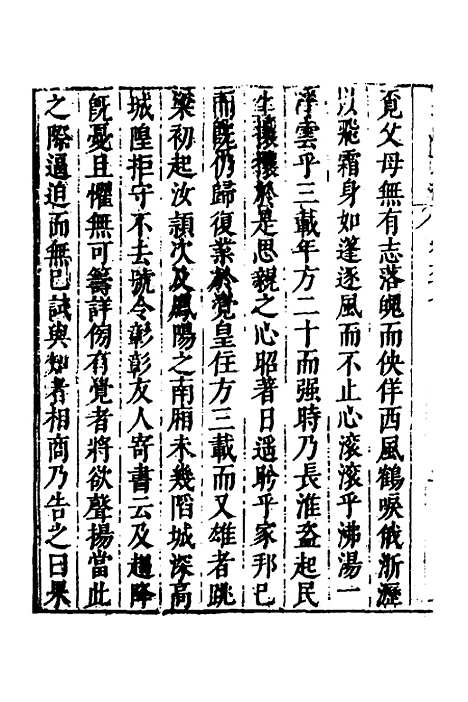 覓父母無有志落魄而佒佯西風鶴唳俄淅瀝
以飛霜身如蓬逐風而不止心滚滚乎沸湯一
浮雲乎三載年方二十而强時乃長淮盗起民
生攘攘於是思親之心昭著日遥盻乎家邦已
而旣仍歸復業於覺皇住方三載而又雄者跳
梁初起汝頴次及鳳陽之南厢未幾陷城深高
城隍拒守不去號令彰彰友人寄書云及趨降
旣憂且懼無可籌詳傍有覺者將欲聲揚當此
之際逼迫而無已試與知者相商乃告之曰果